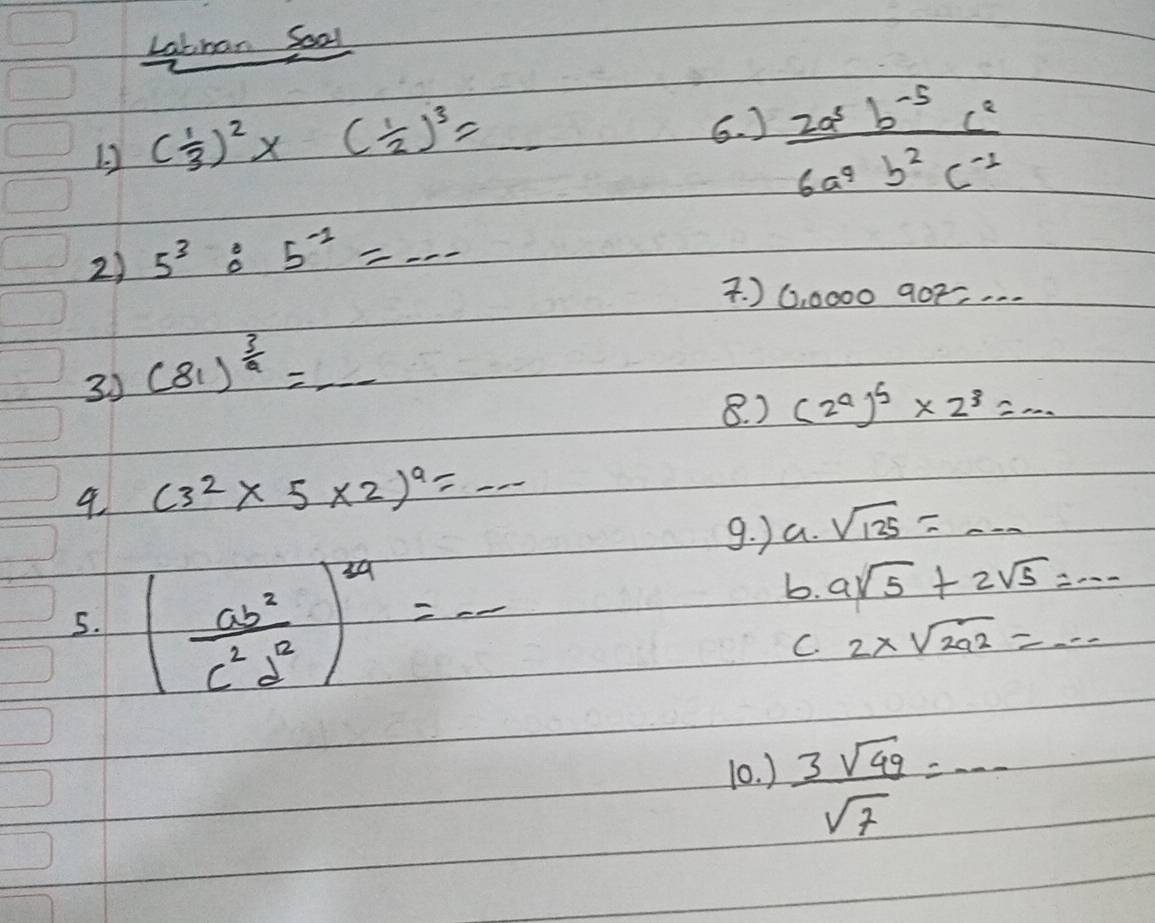 Latihan Soal
1.) (1/3)² × (1/2)³ = ...
2) 5³ : 5⁻² = ...
3.) (81)^(3/4) = ...
4. (3² × 5 × 2)⁴ = ...
5. (ab² / c² d²)⁴ = ...
6.) 2a⁵ b⁻⁵ c² / 6a⁹ b² c⁻¹
7.) 0,0000 907 = ...
8.) (2⁴)⁵ × 2³ = ...
9.) a. √125 = ...
b. 4√5 + 2√5 = ...
c. 2 × √242 = ...
10.) 3√49 / √7 = ...